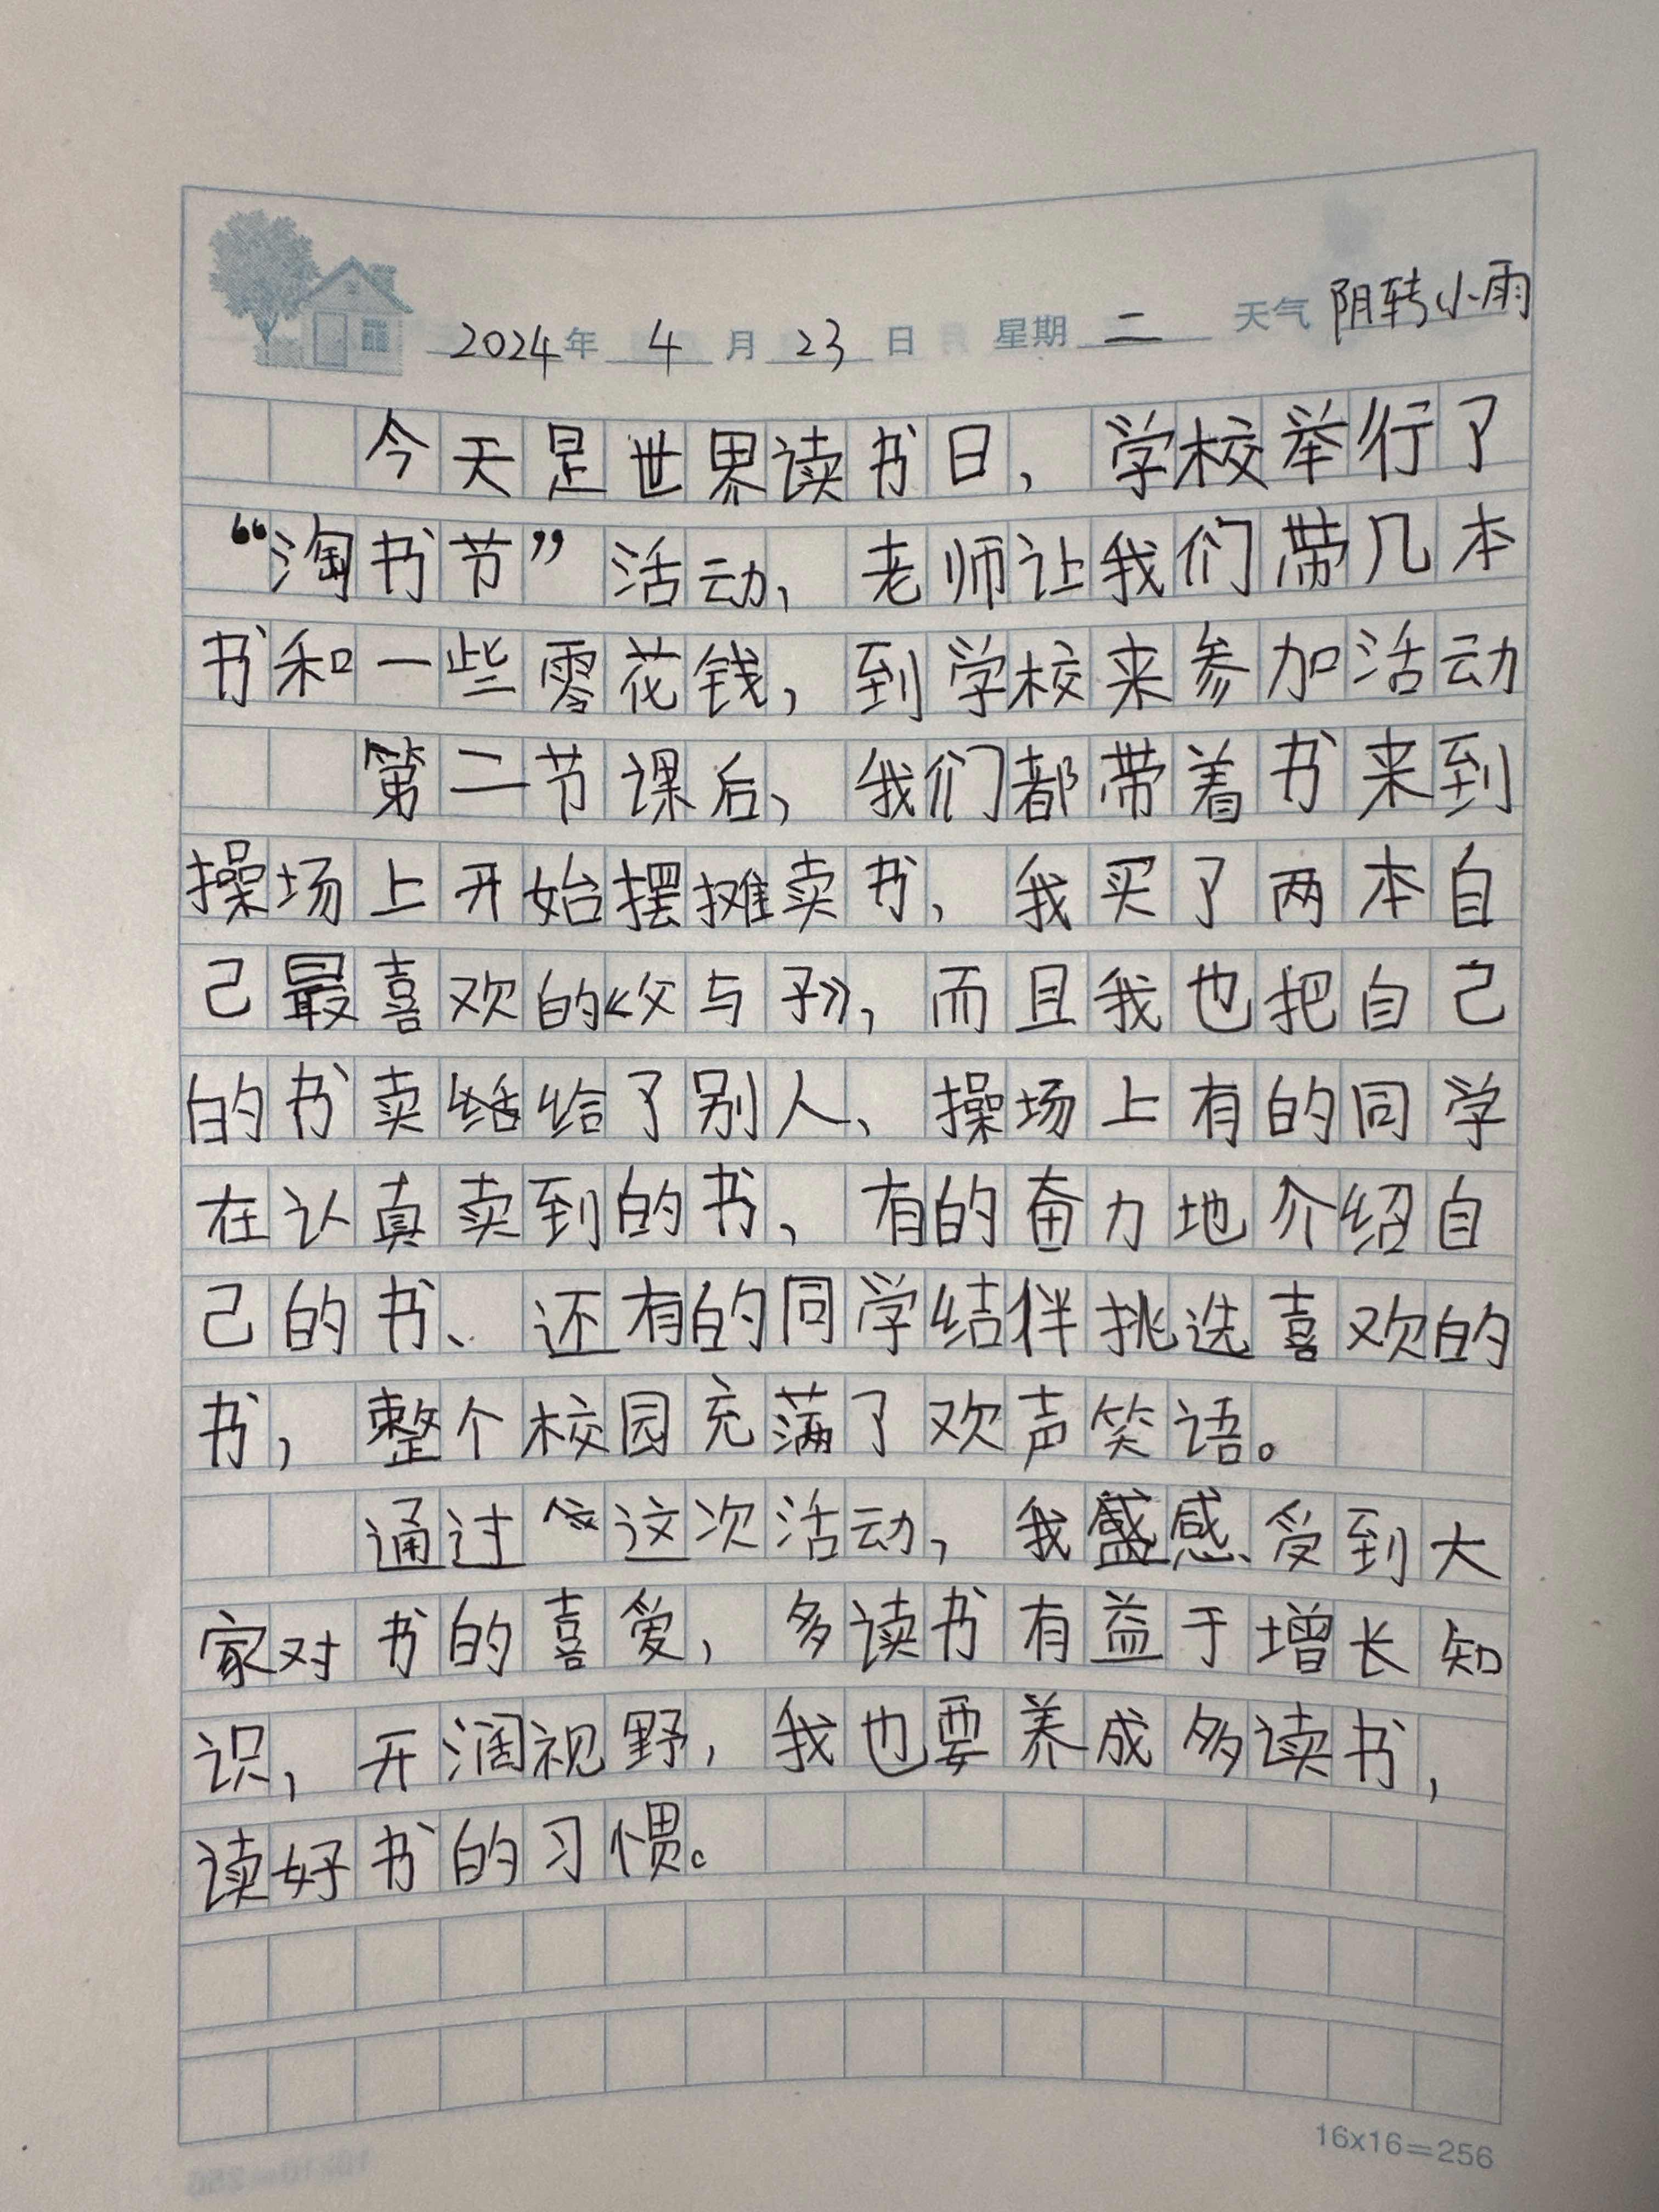 2024年 4 月 23 日 星期 二 天气 阴转小雨
今天是世界读书日，学校举行了
“淘书节”活动，老师让我们带几本
书和一些零花钱，到学校来参加活动
第二节课后，我们都带着书来到
操场上开始摆摊卖书，我买了两本自
己最喜欢的《父与子》，而且我也把自己
的书卖给了别人、操场上有的同学
在认真卖到的书、有的奋力地介绍自
己的书、还有的同学结伴挑选喜欢的
书，整个校园充满了欢声笑语。
通过这次活动，我感受到大
家对书的喜爱，多读书有益于增长知
识，开阔视野，我也要养成多读书，
读好书的习惯。
16x16=256